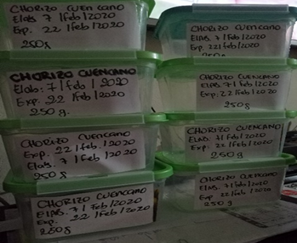 CHORIZO CUENCANO
Elab. 7 | feb | 2020
Exp. 22 | feb | 2020
250g
CHORIZO CUENCANO
Elab. 7 | feb | 2020
Exp. 22 | feb | 2020
250 g.
CHORIZO CUENCANO
Exp. 22 | feb | 2020
Elab. 7 | feb | 2020
250 g
CHORIZO CUENCANO
ELAB. 7 | feb | 2020
Exp. 22 | feb | 2020
250 g
CHORIZO CUENCANO
Elab. 7 | feb | 2020
Exp. 22 | feb | 2020
250 g
CHORIZO CUENCANO
Elab. 7 | feb | 2020
Exp. 22 | feb | 2020
250 g
CHORIZO CUENCANO
Elab. 7 | feb | 2020
Exp. 22 | feb | 2020
250 g
CHORIZO CUENCANO
Elab. 7 | feb | 2020
Exp. 22 | feb | 2020
250 g